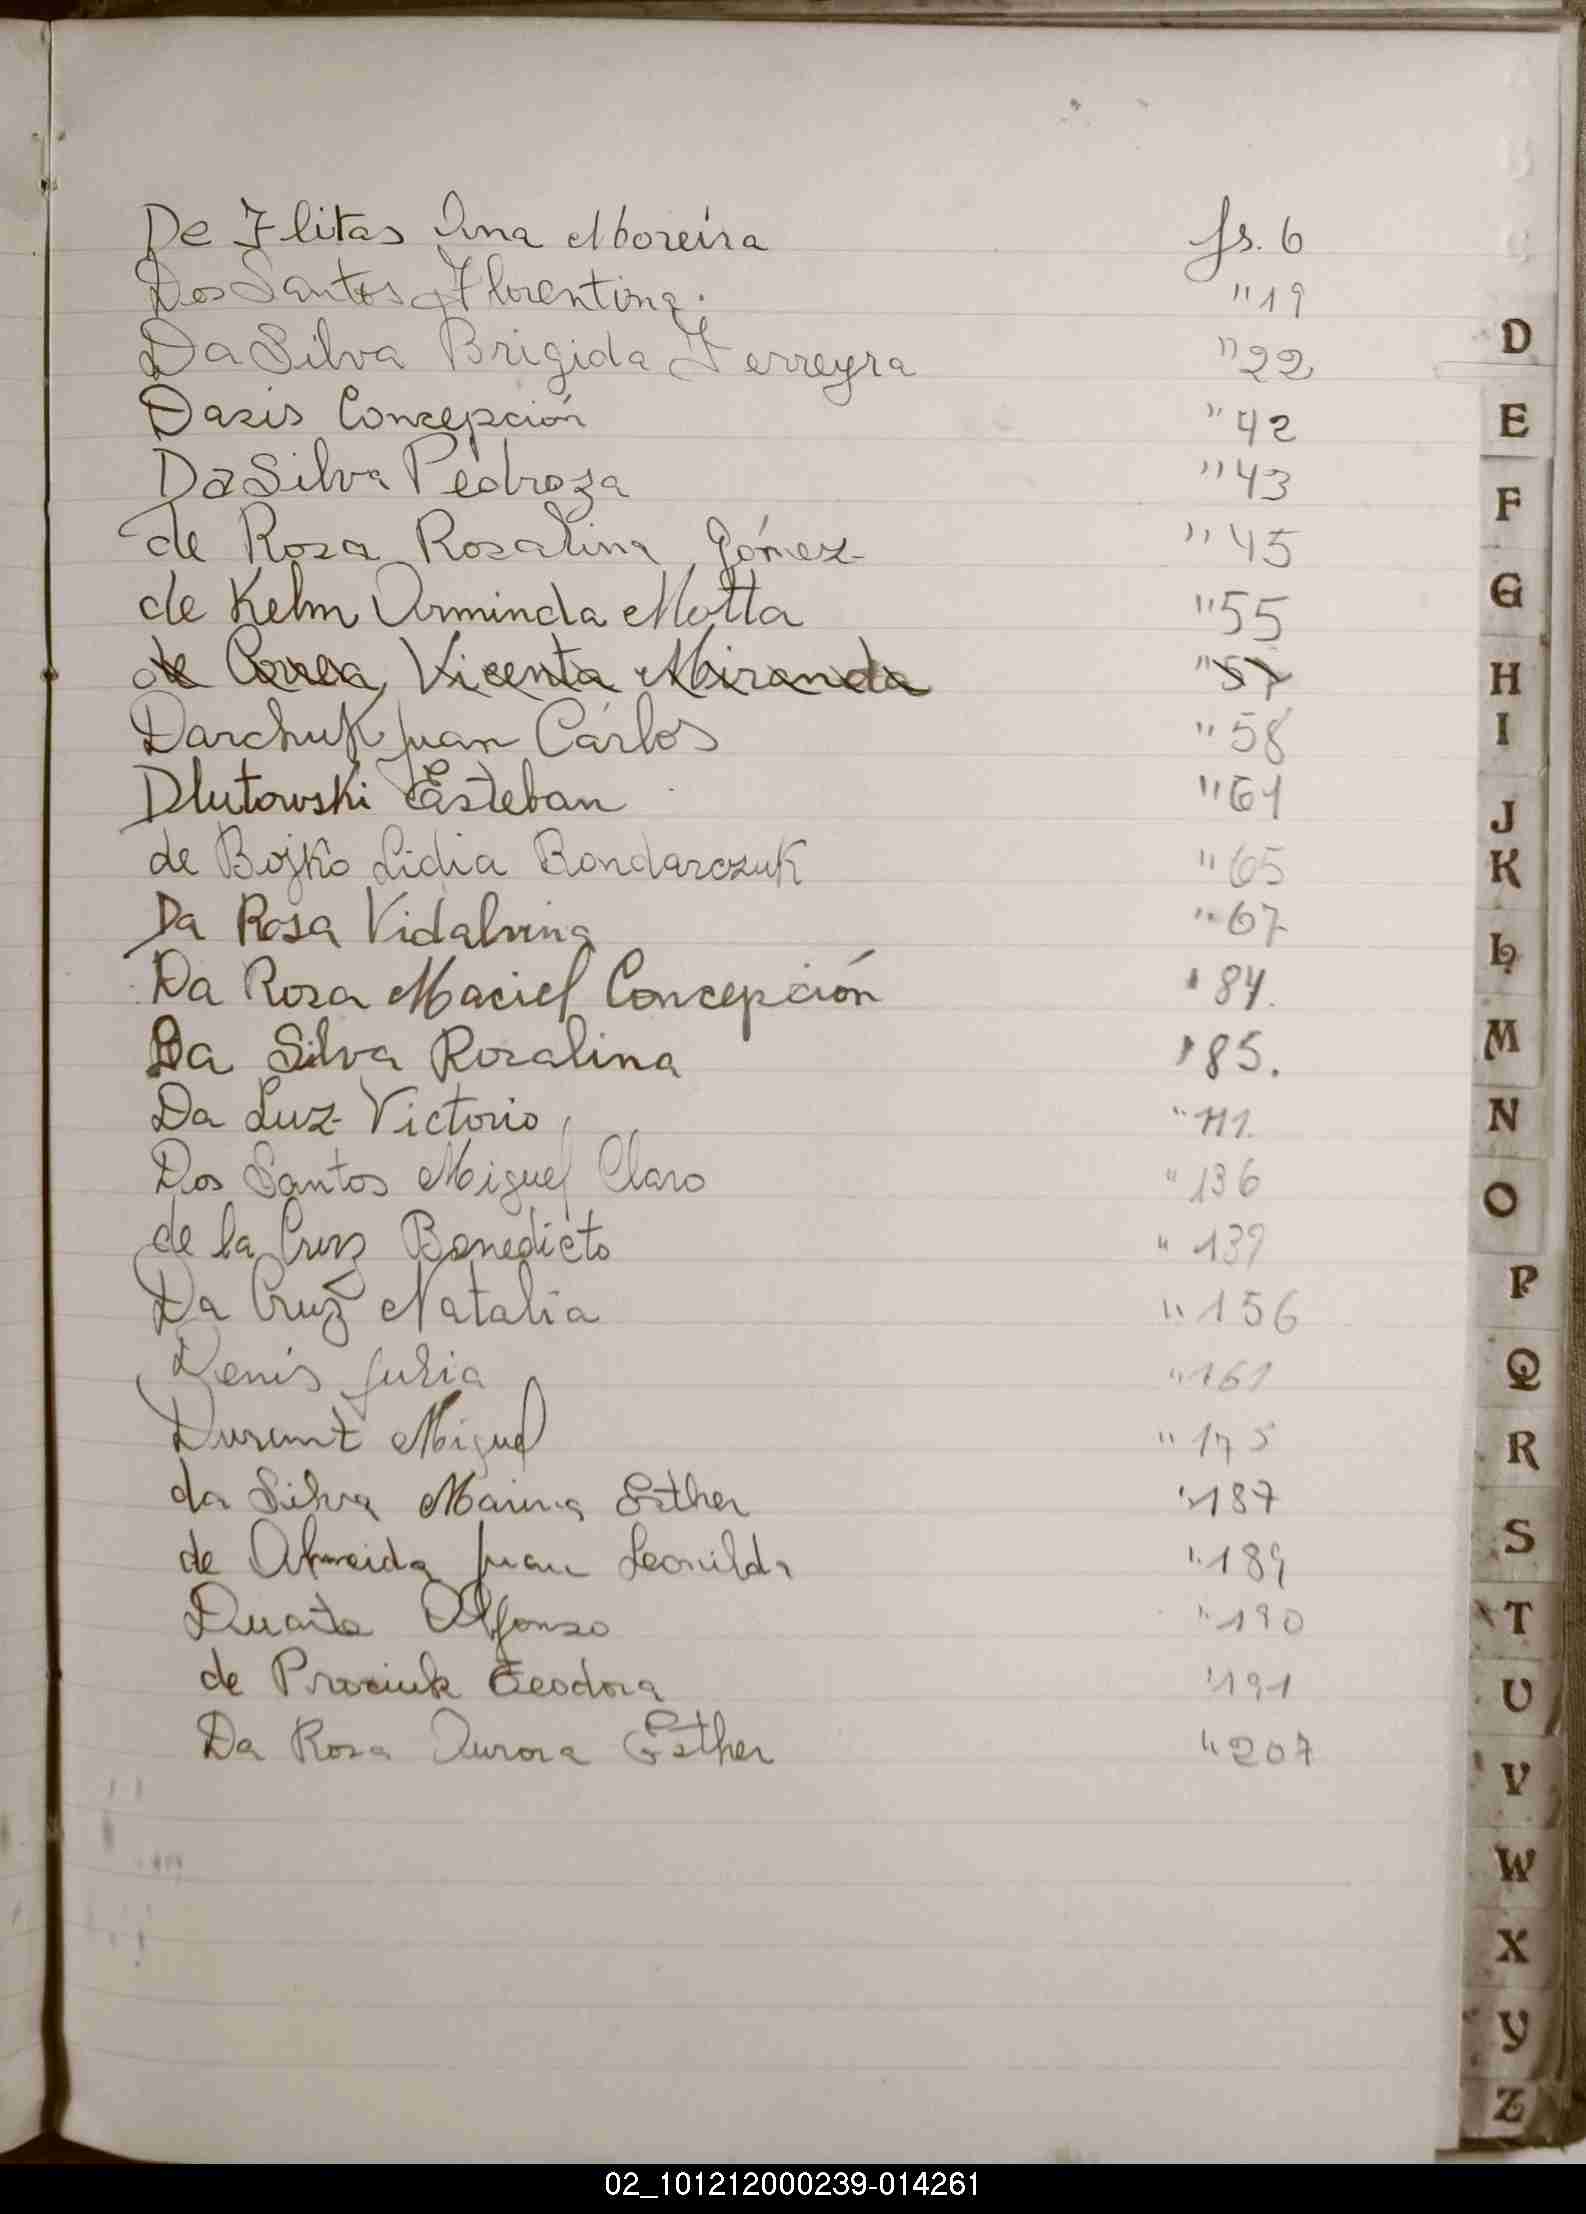 De Flitas Ana Moreira fs. 6
Dos Santos Florentina. " 19
Da Silva Brigida Ferreyra " 22
Dasis Concepción " 42
Da Silva Pedroza " 43
de Rosa Rosalina Gómez " 45
de Kelm Arminda Motta " 55
de Correa Vicenta Miranda " 57
Darchuk Juan Carlos " 58
Dlutowski Esteban " 61
de Bojko Lidia Bondarczuk " 65
Da Rosa Vidalvina " 67
Da Rosa Maciel Concepción " 84.
Da Silva Rosalina " 85.
Da Luz Victorio " 111.
Dos Santos Miguel Claro " 136
de la Cruz Benedicto " 139
Da Cruz Natalia " 156
Denis Julia " 161
Durant Miguel " 175
da Silva Marina Esther " 187
de Almeida Juan Leonilda " 189
Duarte Alfonso " 190
de Teodora " 191
Da Rosa Aurora Esther " 207
D
E
F
G
H
I
J
K
L
M
N
O
P
Q
R
S
T
U
V
W
X
Y
Z
02_101212000239-014261